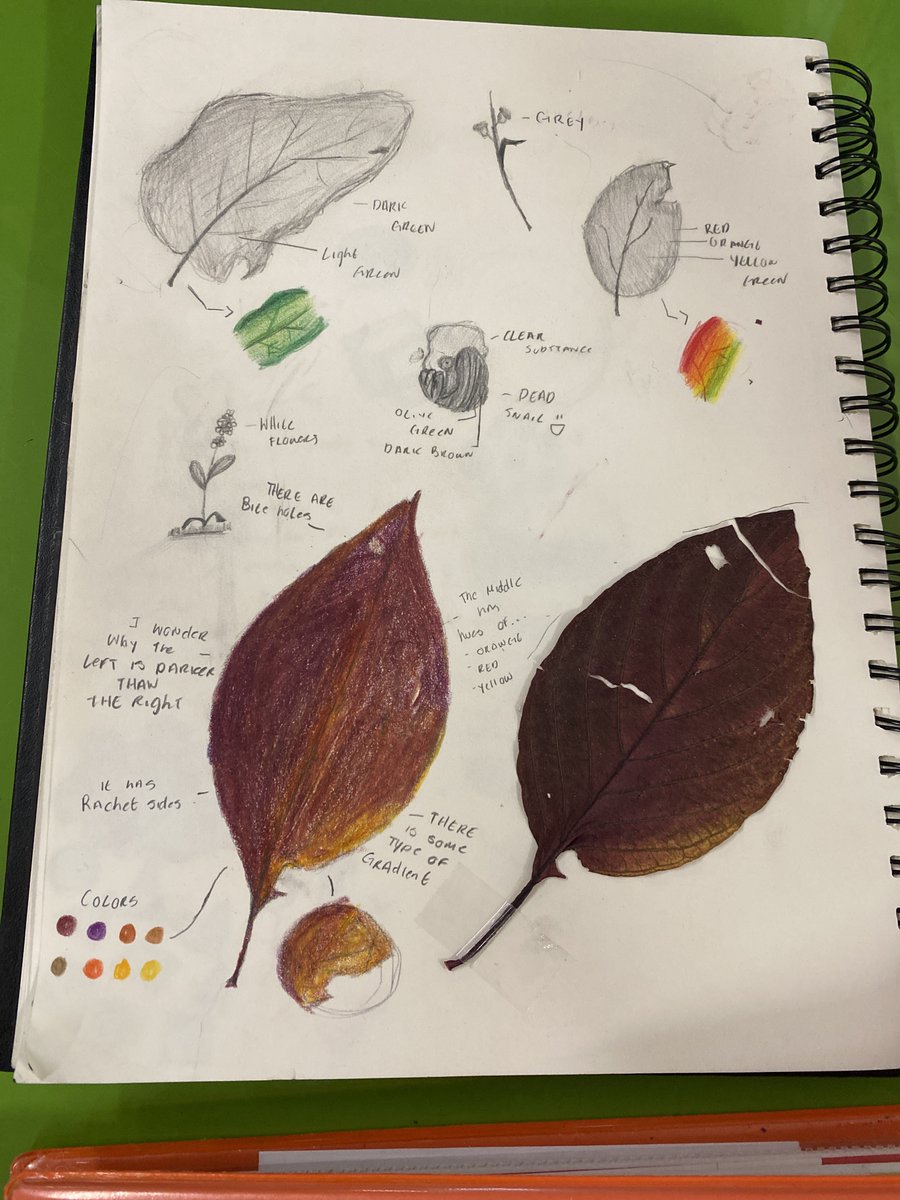 GREY
DARK
GREEN
Light
GREEN
RED
ORANGE
YELLOW
GREEN
CLEAR
SUBSTANCE
DEAD
SNAIL
OLIVE
GREEN
DARK BROWN
WHITE
FLOWERS
THERE ARE
Bite holes
The Middle
has
hues of....
- ORANGE
- RED
- YELLOW
I wonder
Why The
LEFT IS DARKER
THAN
THE Right
IT HAS
Rachet sides
THERE
is some
TYPE OF
GRADIENT
COLORS